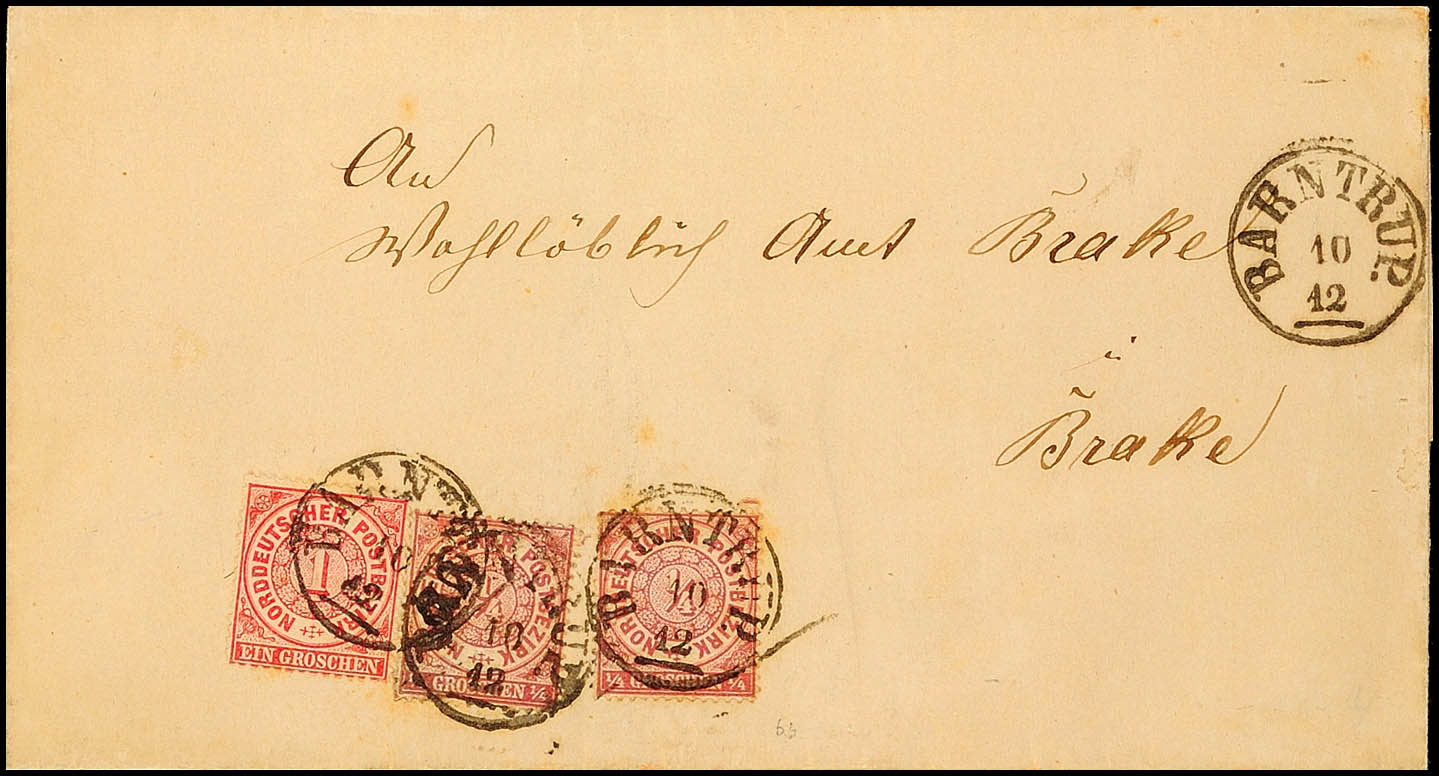 An
Wohllöblich Amt Brake
BARNTRUP.
10
12
i
Brake
NORDDEUTSCHER POSTBEZIRK
1
EIN GROSCHEN
BARNTRUP.
10
12
POSTBEZIRK
1/4
GROSCHEN 1/4
BARNTRUP.
10
12
NORDDEUTSCHER POSTBEZIRK
1/4
1/4 GROSCHEN 1/4
BARNTRUP.
10
12